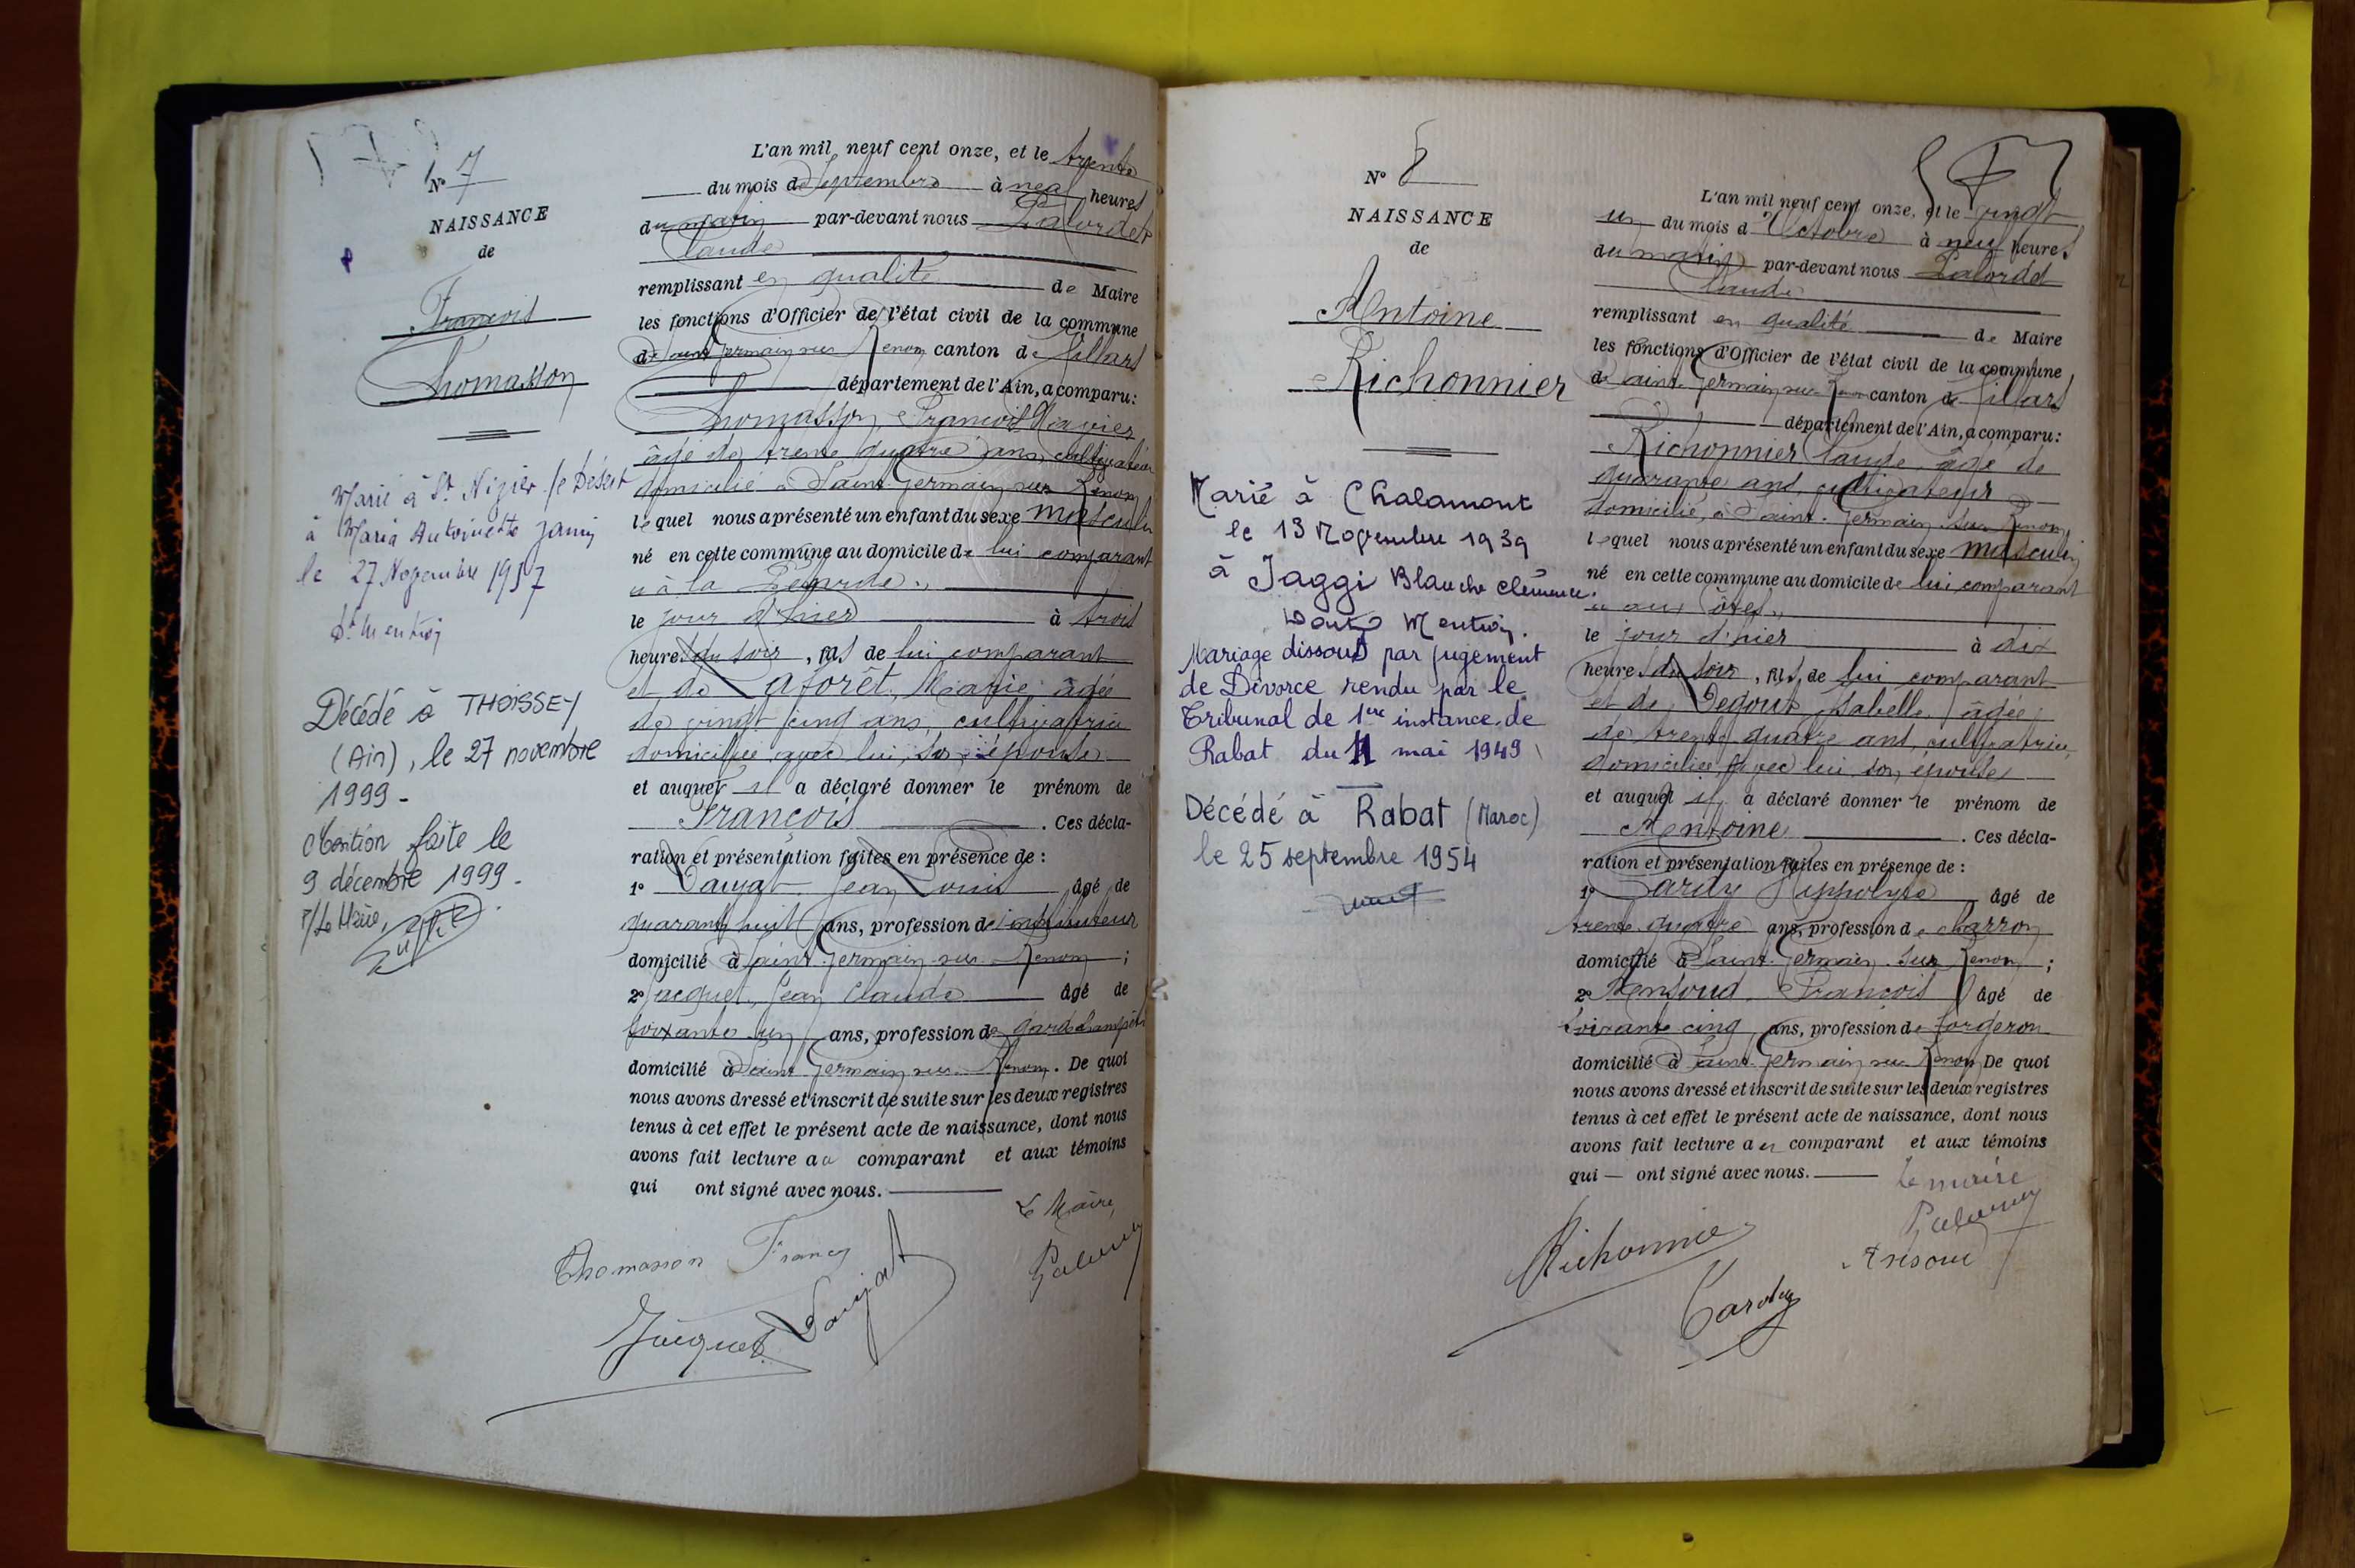 N° 7
NAISSANCE
de
François
Thomasson
Marié à St Nizier le Désert
à Maria Antoinette
le 27 Novembre 1937
Dt Mention
Décédé à THOISSEY
(Ain), le 27 novembre
1999 -
Mention faite le
9 décembre 1999.
P/Le Maire,
L'an mil neuf cent onze, et le trente
du mois de Septembre à neuf heures
du matin par-devant nous Palordet
Claude
remplissant en qualité de Maire
les fonctions d'Officier de l'état civil de la commune
de Saint Germain sur Renon canton de Villars
département de l'Ain, a comparu :
Thomasson, François Xavier
âgé de trente quatre ans, cultivateur
domicilié à Saint Germain sur Renon
lequel nous a présenté un enfant du sexe masculin
né en cette commune au domicile de lui comparant
à la
le jour d'hier à trois
heures du soir, fils de lui comparant
et de Laforêt, Marie, âgée
de vingt cinq ans, cultivatrice
domiciliée avec lui, son épouse
et auquel il a déclaré donner le prénom de
François . Ces décla-
ration et présentation faites en présence de :
1° Daujat Jean Louis âgé de
quarante huit ans, profession d'instituteur
domicilié à Saint Germain sur Renon ;
2° Jacquet, Jean Claude âgé de
soixante un ans, profession de garde champêtre
domicilié à Saint Germain sur Renon. De quoi
nous avons dressé et inscrit de suite sur les deux registres
tenus à cet effet le présent acte de naissance, dont nous
avons fait lecture au comparant et aux témoins
qui ont signé avec nous.
Le Maire,
Thomasson
Jacquet Daujat
N° 8
NAISSANCE
de
Antoine
Richonnier
Marié à Chalamont
le 13 Novembre 1939
à Jaggi Blanche Clémence.
Dont Mention.
Mariage dissous par jugement
de Divorce rendu par le
Tribunal de 1ère instance de
Rabat du 11 mai 1949
Décédé à Rabat (Maroc)
le 25 septembre 1954
L'an mil neuf cent onze, et le vingt
un du mois d'Octobre à neuf heures
du matin par-devant nous Palordet
Claude
remplissant en qualité de Maire
les fonctions d'Officier de l'état civil de la commune
de Saint Germain sur Renon canton de Villars
département de l'Ain, a comparu :
Richonnier Claude, âgé de
quarante ans, cultivateur
domicilié, à Saint-Germain-sur Renon
lequel nous a présenté un enfant du sexe masculin
né en cette commune au domicile de lui comparant
" aux Côtes "
le jour d'hier à dix
heures du soir, fils de lui comparant
et de Degout Isabelle, âgée
de trente quatre ans, cultivatrice
domiciliée avec lui, son épouse
et auquel il a déclaré donner le prénom de
Antoine . Ces décla-
ration et présentation faites en présence de :
1° Tardy Hippolyte âgé de
trente quatre ans, profession de charron
domicilié à Saint Germain sur Renon ;
2° François âgé de
soixante cinq ans, profession de forgeron
domicilié à Saint Germain sur Renon De quoi
nous avons dressé et inscrit de suite sur les deux registres
tenus à cet effet le présent acte de naissance, dont nous
avons fait lecture au comparant et aux témoins
qui — ont signé avec nous. Le maire
Richonnier
Tardy